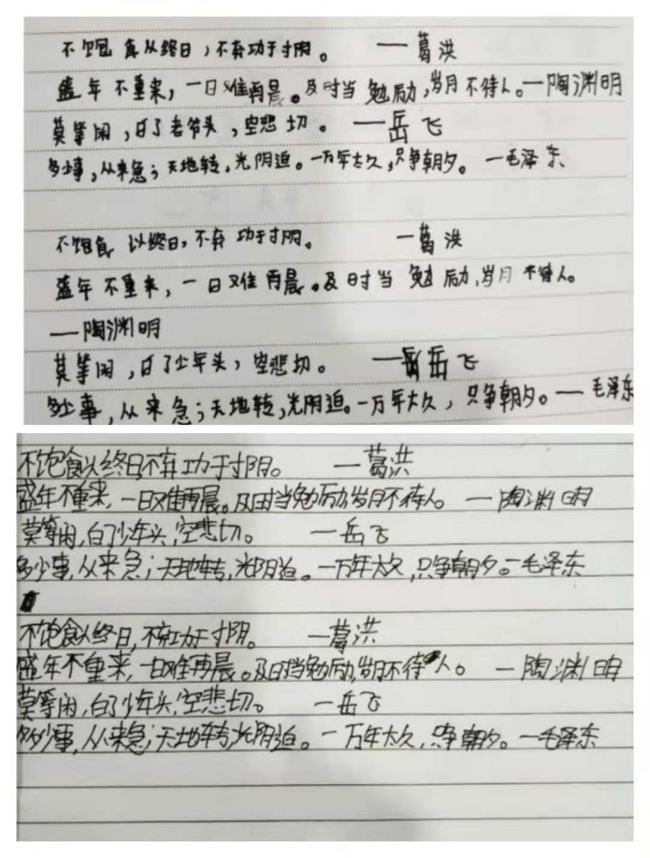 不饱食从终日，不弃功于寸阴。 —葛洪
盛年不重来，一日难再晨。及时当勉励，岁月不待人。—陶渊明
莫等闲，白了老爷头，空悲切。 —岳飞
多少事，从来急；天地转，光阴迫。一万年太久，只争朝夕。 —毛泽东
不饱食以终日，不弃功于寸阴。 —葛洪
盛年不重来，一日难再晨。及时当勉励，岁月不待人。
——陶渊明
莫等闲，白了少年头，空悲切。 —岳飞
多少事，从来急；天地转，光阴迫。一万年太久，只争朝夕。—毛泽东
不饱食以终日不弃功于寸阴。 —葛洪
盛年不重来，一日难再晨。及时当勉励岁月不待人。 —陶渊明
莫等闲，白了少年头，空悲切。 —岳飞
多少事，从来急；天地转，光阴迫。一万年太久，只争朝夕。—毛泽东
不饱食以终日，不弃功于寸阴。 —葛洪
盛年不重来，一日难再晨。及时当勉励，岁月不待人。 —陶渊明
莫等闲，白了少年头，空悲切。 —岳飞
多少事，从来急；天地转，光阴迫。一万年太久，只争朝夕。—毛泽东